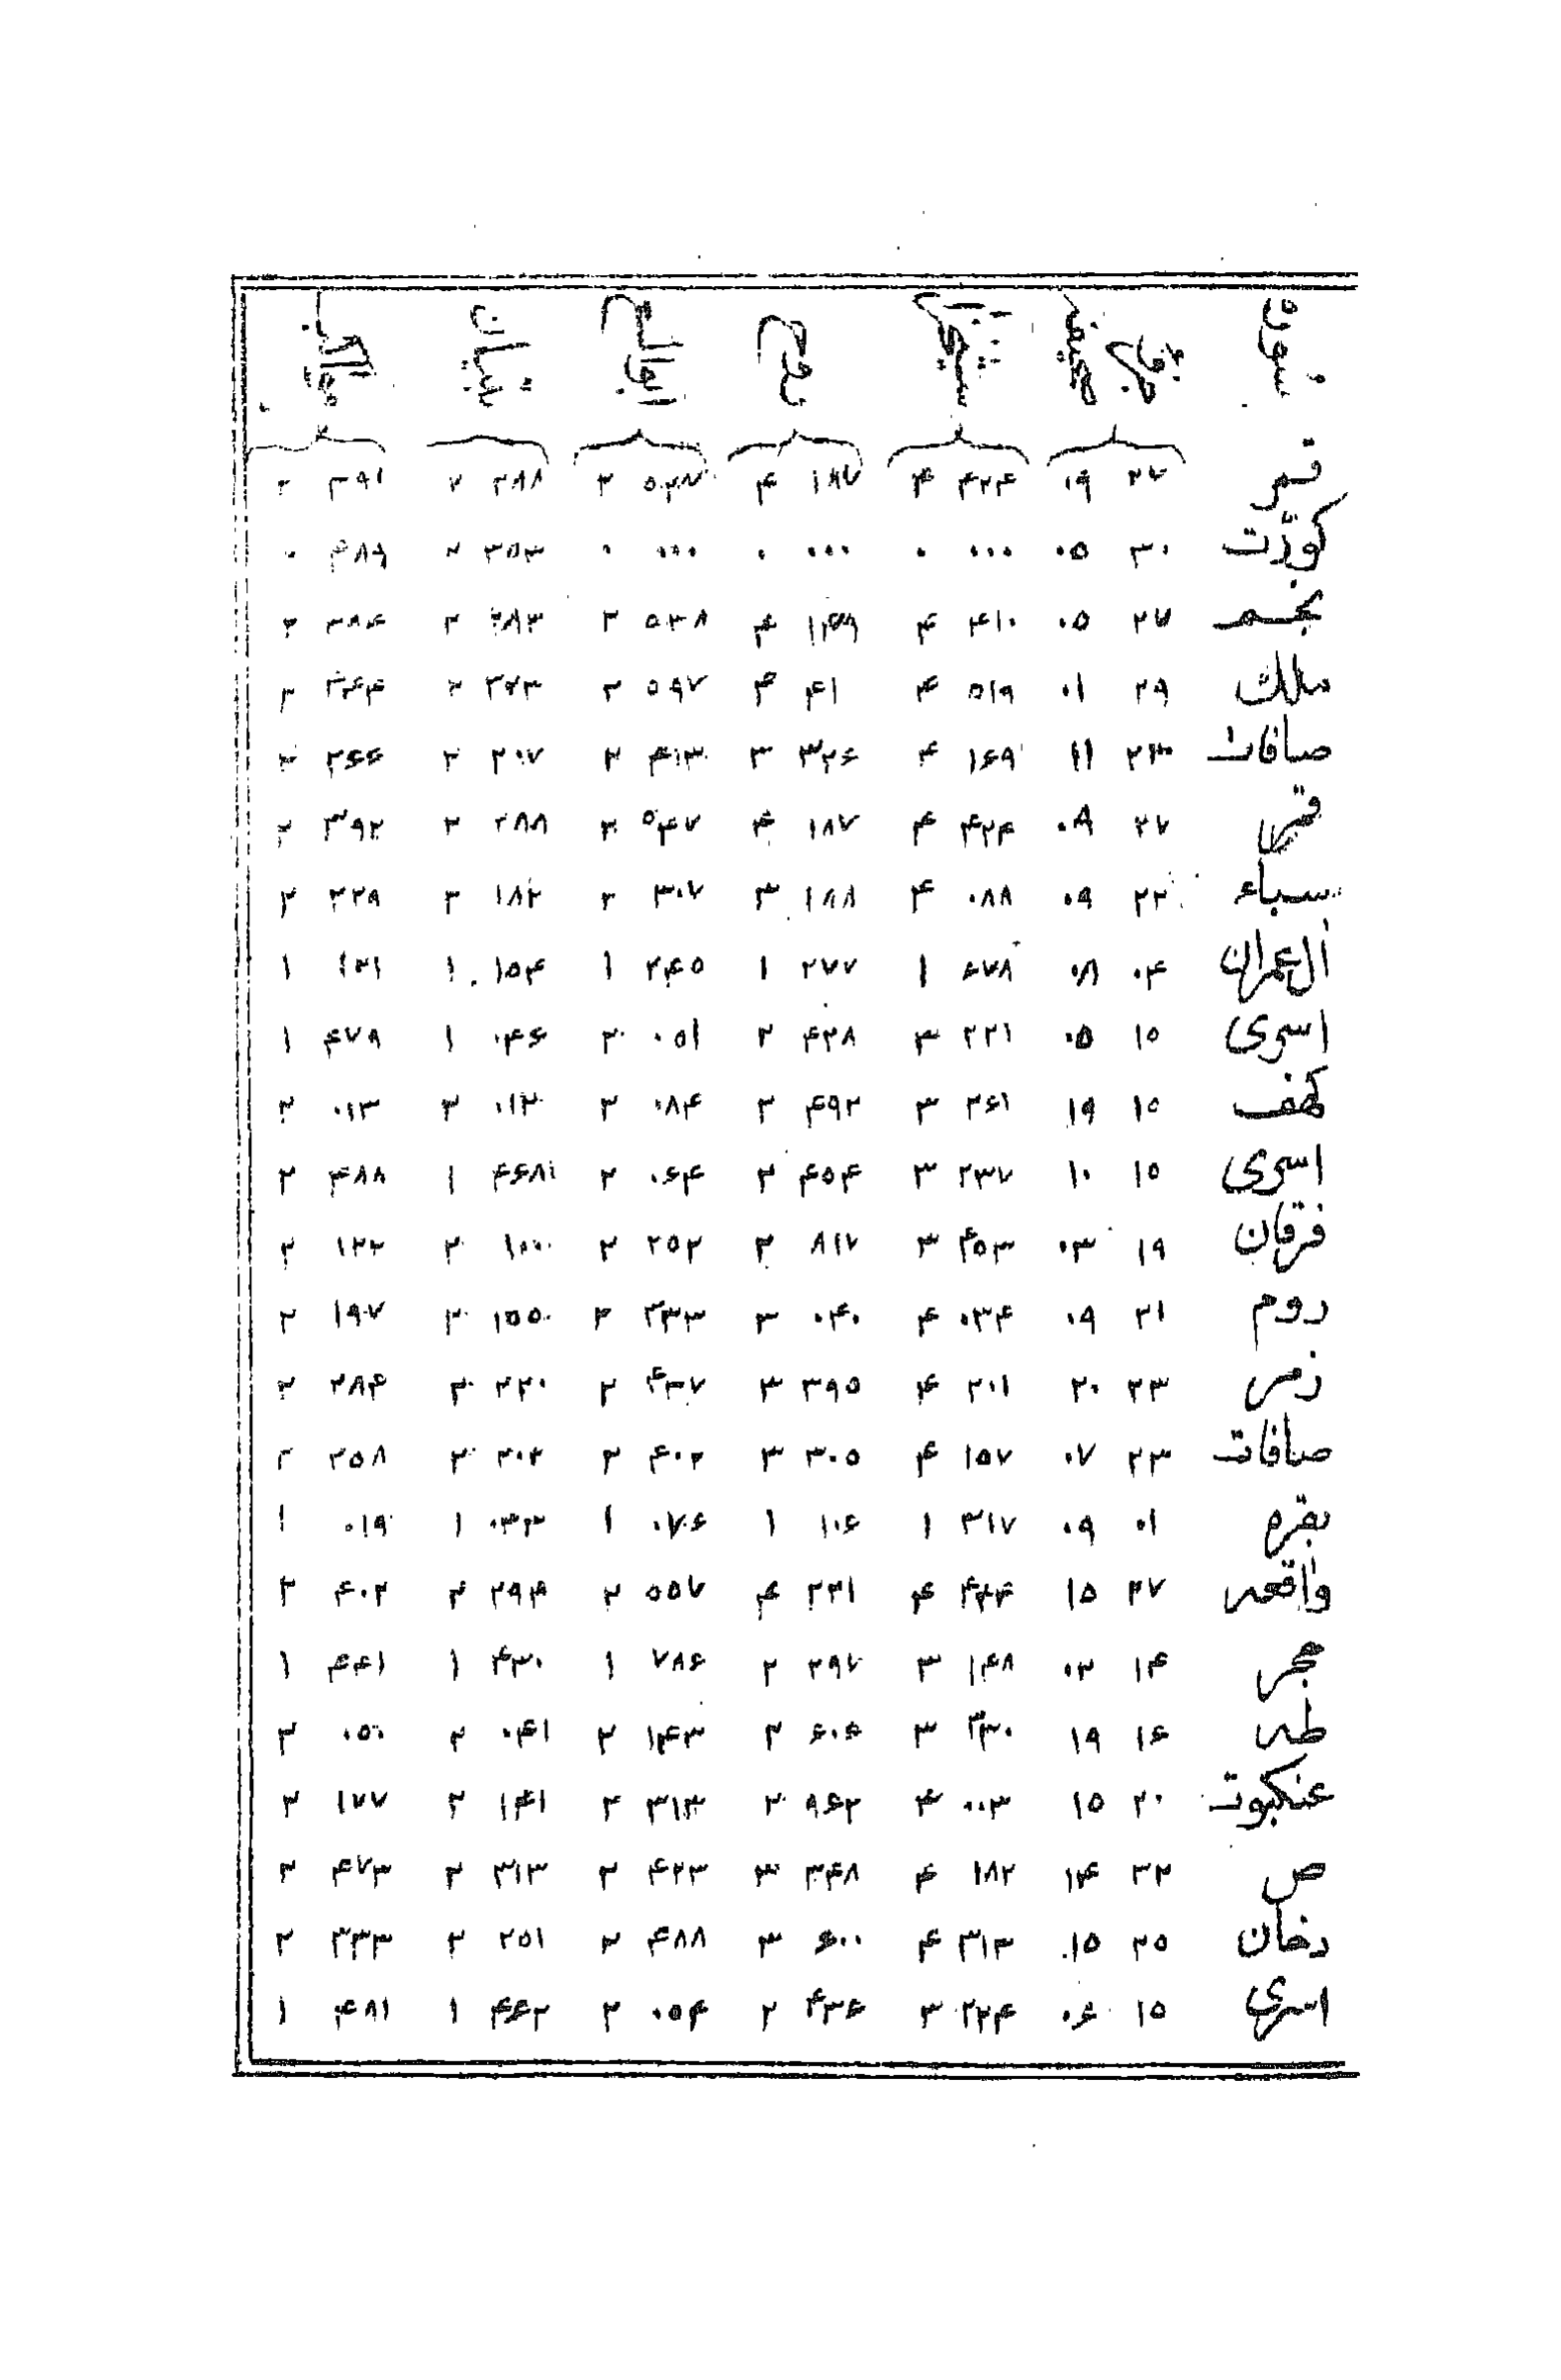 سوره جزء صفحه روح تبيان
قمر ۲۷ ۱۹ ۴۲۴ ۴ ۱۸۷ ۴ ۵۴۷ ۲ ۲۸۸ ۲ ۳۹۱ ۲
کورت ۳۰ ۰۵ ۰۰۰ ۰ ۰۰۰ ۰ ۰۰۰ ۰ ۳۸۳ ۲ ۴۸۹ ۰
نجم ۲۷ ۰۵ ۴۱۰ ۴ ۱۴۹ ۴ ۵۳۸ ۲ ۲۸۳ ۲ ۳۸۴ ۲
ملك ۲۹ ۰۱ ۵۱۹ ۴ ۴۱ ۴ ۵۹۷ ۲ ۲
صافات ۲۳ ۱۱ ۱۶۹ ۴ ۳۲۶ ۳ ۴۱۳ ۲ ۲۰۷ ۲ ۲۶۶ ۲
قمر ۲۷ ۰۹ ۴۲۴ ۴ ۱۸۷ ۴ ۵۴۷ ۲ ۲۸۸ ۲ ۳۹۲ ۲
سباء ۲۲ ۰۹ ۰۸۸ ۴ ۱۸۸ ۳ ۳۰۷ ۲ ۱۸۲ ۲ ۲۲۹ ۲
آل عمران ۰۴ ۰۸ ۶۷۸ ۱ ۲۷۷ ۱ ۲۴۵ ۱ ۱۵۴ ۱ ۱۲۱ ۱
اسرى ۱۵ ۰۵ ۲۲۱ ۳ ۴۲۸ ۲ ۰۵۱ ۲ ۰۴۶ ۱ ۴۷۹ ۱
كهف ۱۵ ۱۹ ۲۶۱ ۳ ۴۹۲ ۲ ۰۸۴ ۲ ۰۱۲ ۲ ۰۱۳ ۲
اسرى ۱۵ ۱۰ ۲۳۷ ۳ ۴۵۴ ۲ ۰۶۴ ۲ ۴۶۸۱ ۱ ۴۸۸ ۲
فرقان ۱۹ ۰۳ ۴۵۳ ۳ ۸۱۷ ۲ ۲۵۲ ۲ ۱۰۰ ۲ ۱۲۲ ۲
روم ۲۱ ۰۹ ۰۳۴ ۴ ۰۴۰ ۳ ۲۳۳ ۲ ۱۵۵ ۲ ۱۹۷ ۲
زمر ۲۳ ۲۰ ۲۰۱ ۴ ۳۹۵ ۳ ۴۳۷ ۲ ۲۲۰ ۲ ۲۸۴ ۲
صافات ۲۳ ۰۷ ۱۵۷ ۴ ۳۰۵ ۳ ۴۰۲ ۲ ۲۰۲ ۲ ۲۵۸ ۲
بقره ۰۱ ۰۹ ۳۱۷ ۱ ۱۰۶ ۱ ۰۷۶ ۱ ۰۳۳ ۱ ۰۱۹ ۱
واقعه ۲۷ ۱۵ ۴۴۴ ۴ ۲۲۱ ۴ ۵۵۷ ۲ ۲۹۴ ۲ ۴۰۲ ۲
حجر ۱۴ ۰۲ ۱۴۸ ۳ ۲۹۷ ۲ ۷۸۶ ۱ ۴۳۰ ۱ ۴۴۱ ۱
طه ۱۶ ۱۹ ۳۳۰ ۳ ۶۰۶ ۲ ۱۴۳ ۲ ۰۴۱ ۲ ۰۵۰ ۲
عنكبوت ۲۰ ۱۵ ۰۰۳ ۴ ۹۶۲ ۲ ۳۱۳ ۲ ۱۴۱ ۲ ۱۷۷ ۲
ص ۲۳ ۱۴ ۱۸۲ ۴ ۳۴۸ ۳ ۴۲۳ ۲ ۳۱۳ ۲ ۴۷۳ ۲
دخان ۲۵ ۱۵ ۳۱۳ ۴ ۶۰۰ ۳ ۴۸۸ ۲ ۲۵۱ ۲ ۳۳۳ ۲
اسرى ۱۵ ۰۶ ۲۲۴ ۳ ۴۳۶ ۲ ۰۵۴ ۲ ۴۶۲ ۱ ۴۸۱ ۱